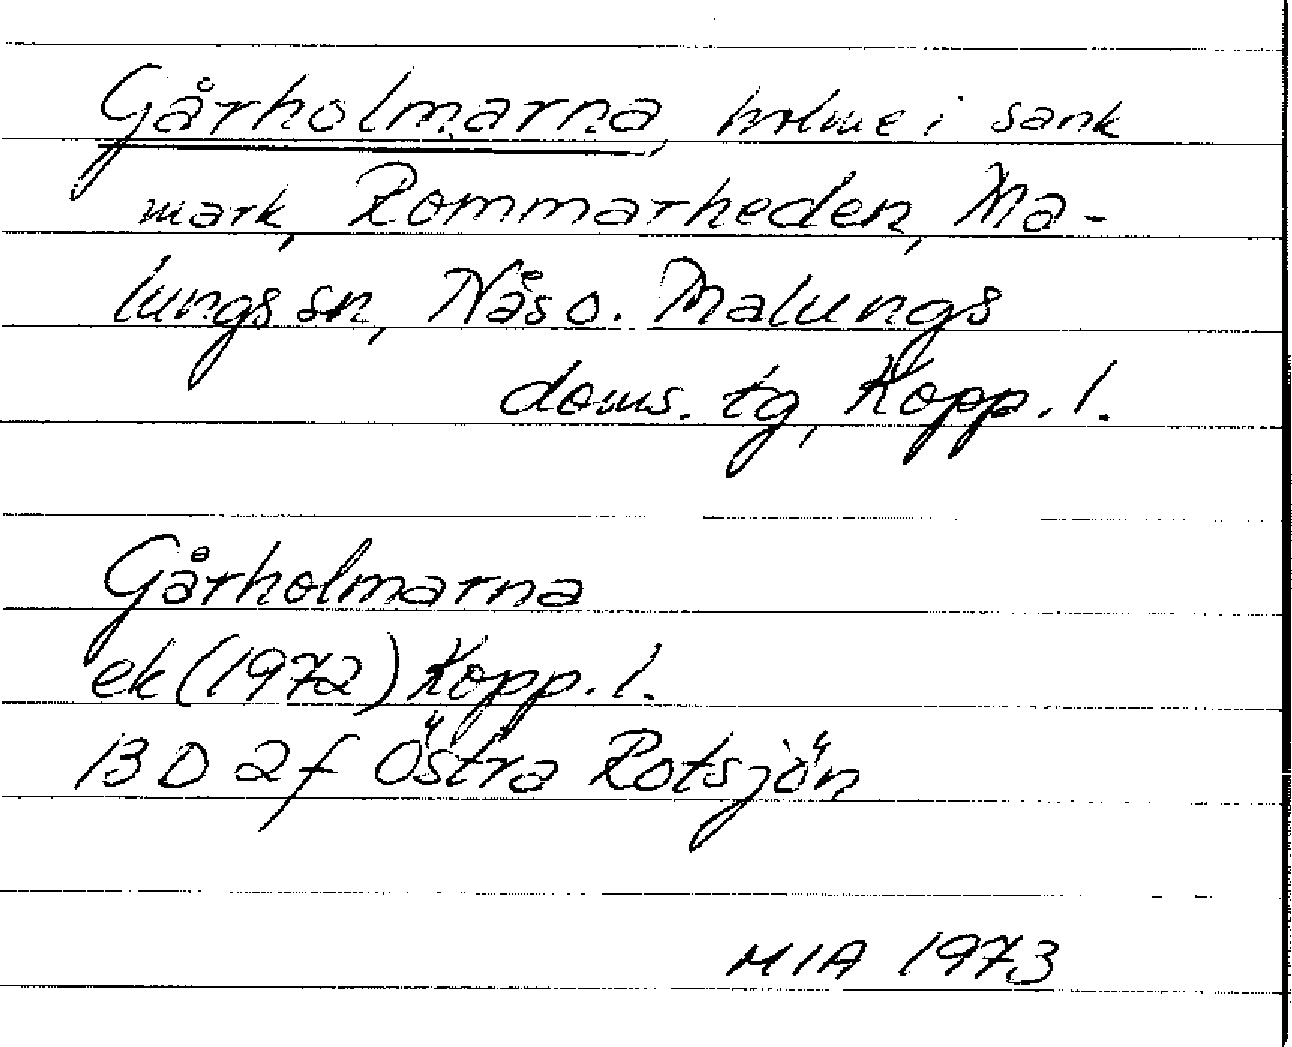 Gårholmarna, holme i sank
mark, Rommarheden, Ma-
lungs sn, Nås o. Malungs
doms. tg, Kopp. l.
Gårholmarna
ek (1972) Kopp. l.
13 D 2f Östra Rotsjön
MIA 1973